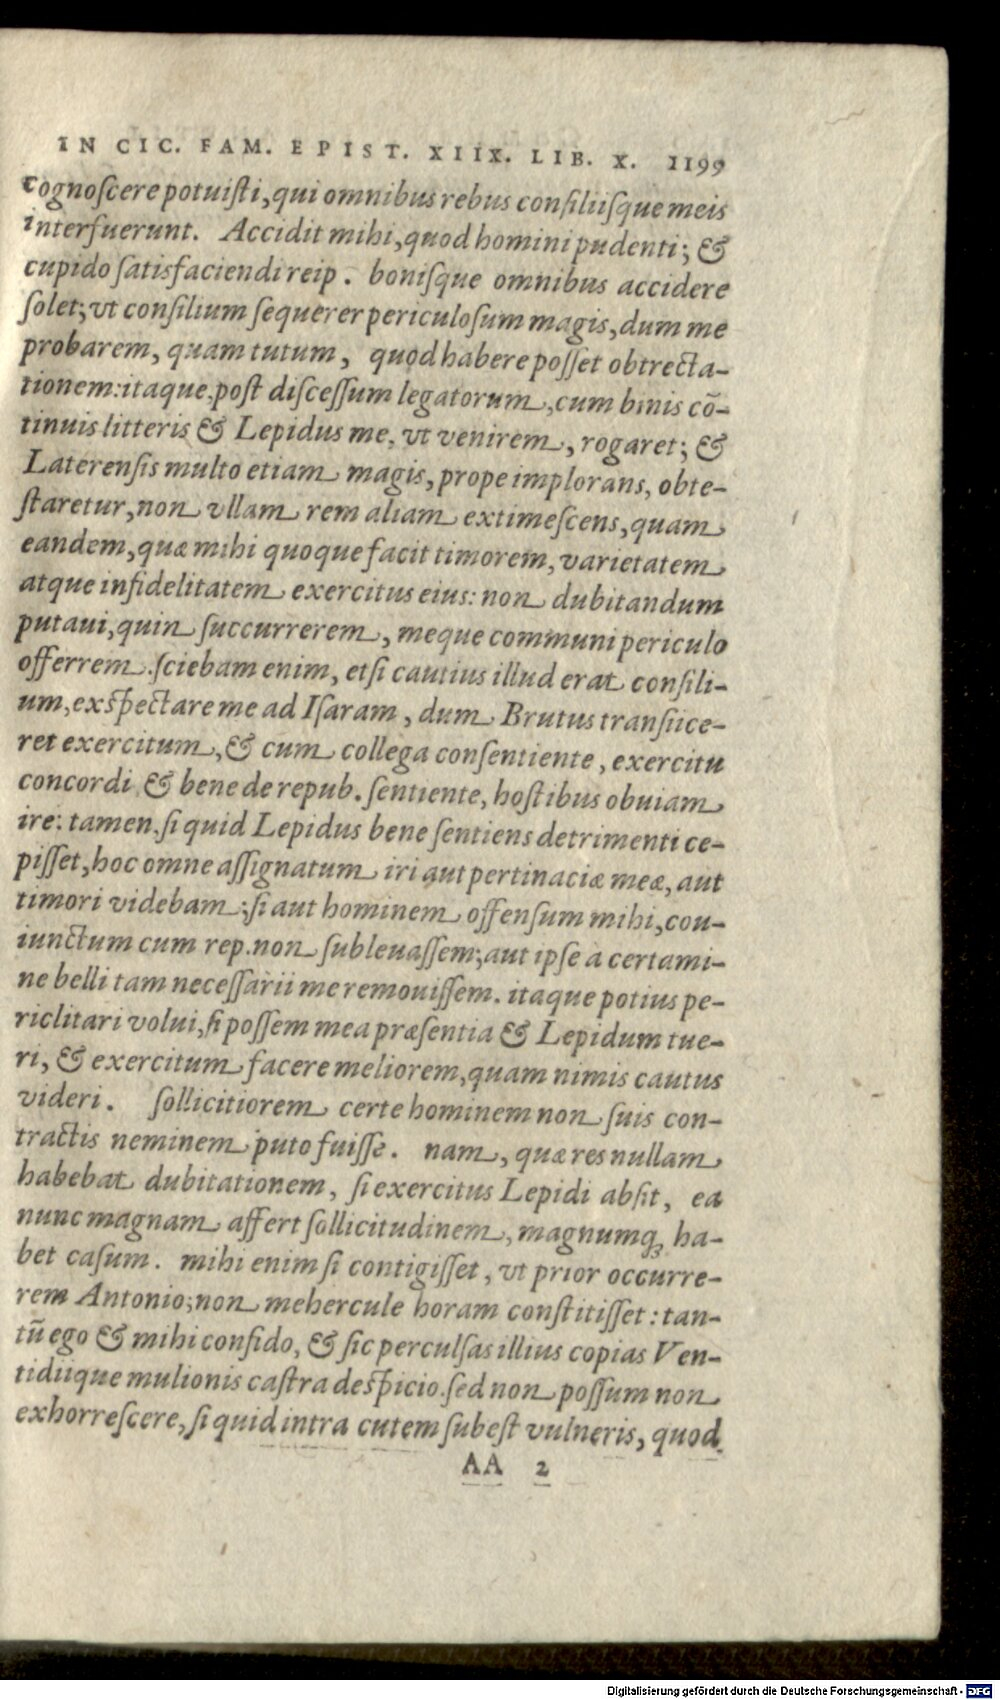 IN CIC. FAM. EPIST. XIIX. LIB. X. 1199
cognoſcere potuiſti, qui omnibus rebus conſiliiſque meis
interfuerunt. Accidit mihi, quod homini pudenti; &
cupido ſatisfaciendi reip. boniſque omnibus accidere
ſolet; vt conſilium ſequerer periculoſum magis, dum me
probarem, quam tutum, quod habere poſſet obtrecta-
tionem: itaque poſt diſceſſum legatorum, cum binis cō-
tinuis litteris & Lepidus me, vt venirem, rogaret; &
Laterenſis multo etiam magis, prope implorans, obte-
ſtaretur, non vllam rem aliam extimeſcens, quam
eandem, quæ mihi quoque facit timorem, varietatem
atque infidelitatem exercitus eius: non dubitandum
putaui, quin ſuccurrerem, meque communi periculo
offerrem. ſciebam enim, etſi cautius illud erat conſili-
um, exſpectare me ad Iſaram, dum Brutus transiice-
ret exercitum, & cum collega conſentiente, exercitu
concordi & bene de repub. ſentiente, hoſtibus obuiam
ire: tamen, ſi quid Lepidus bene ſentiens detrimenti ce-
piſſet, hoc omne aſſignatum iri aut pertinaciæ meæ, aut
timori videbam; ſi aut hominem offenſum mihi, cou-
iunctum cum rep. non ſubleuaſſem; aut ipſe à certami-
ne belli tam neceſſarii me remouiſſem. itaque potius pe-
riclitari volui, ſi poſſem mea præſentia & Lepidum tue-
ri, & exercitum facere meliorem, quam nimis cautus
videri. ſollicitiorem certe hominem non ſuis con-
tractis neminem puto fuiſſe. nam, quæ res nullam
habebat dubitationem, ſi exercitus Lepidi abſit, ea
nunc magnam affert ſollicitudinem, magnumq; ha-
bet caſum. mihi enim ſi contigiſſet, vt prior occurre-
rem Antonio; non mehercule horam conſtitiſſet: tan-
tū ego & mihi confido, & ſic perculſas illius copias Ven-
tidiique mulionis caſtra deſpicio. ſed non poſſum non
exhorreſcere, ſi quid intra cutem ſubeſt vulneris, quod
AA 2
Digitalisierung gefördert durch die Deutsche Forschungsgemeinschaft - DFG